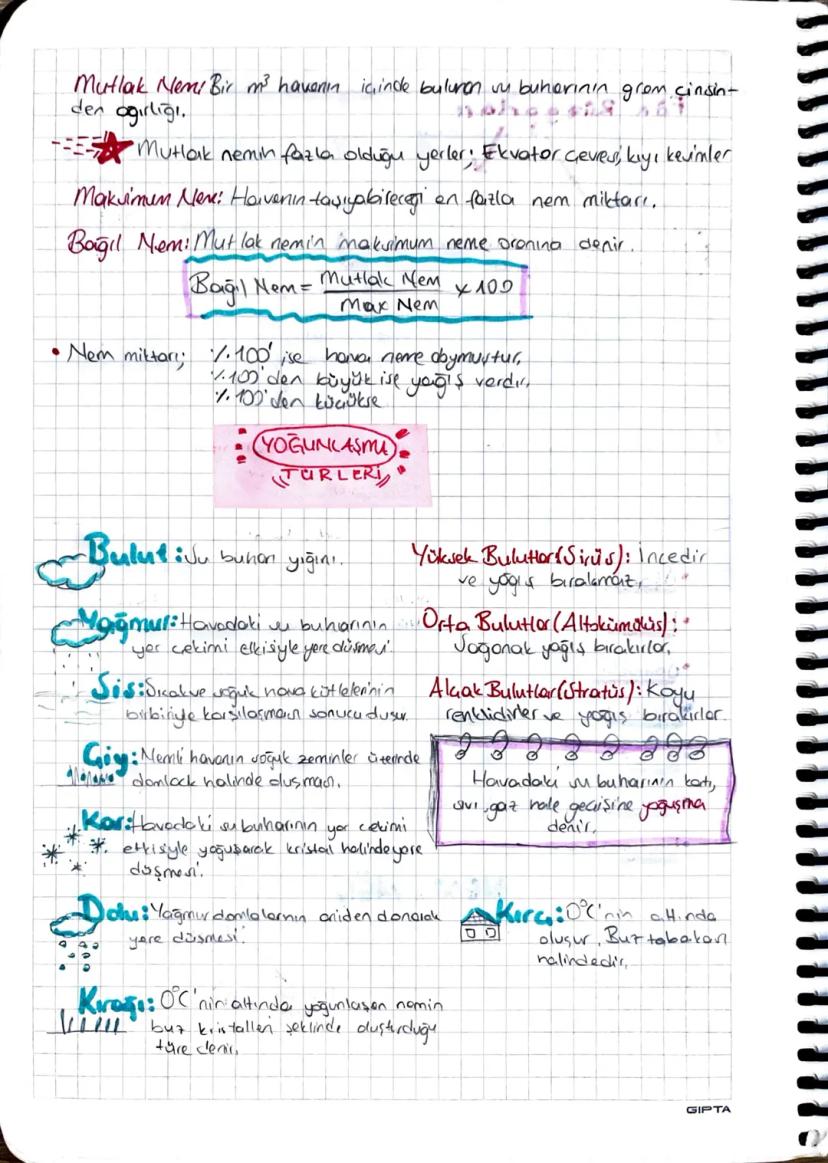 Mutlak Nem: Bir m³ havanın içinde bulunan su buharının gram cinsin-
den ağırlığı.
Mutlak nemin fazla olduğu yerler; Ekvator çevresi, kıyı kesimler
Maksimum Nem: Havanın taşıyabileceği en fazla nem miktarı.
Bağıl Nem: Mutlak nemin maksimum neme oranına denir.
Bağıl Nem = Mutlak Nem / Max Nem x 100
• Nem miktarı; %100' ise hava neme doymuştur,
%100'den büyük ise yağış vardır,
%100'den küçükse
YOĞUNLAŞMA
TÜRLERİ
Bulut: Su buharı yığını.
Yağmur: Havadaki su buharının
yer çekimi etkisiyle yere düşmesi.
Sis: Sıcak ve soğuk hava kütlelerinin
birbiriyle karşılaşması sonucu oluşur.
Çiy: Nemli havanın soğuk zeminler üzerinde
damlacık halinde oluşması.
Kar: Havadaki su buharının yer çekimi
etkisiyle yoğuşarak kristal halinde yere
düşmesi.
Dolu: Yağmur damlalarının aniden donarak
yere düşmesi.
Kırağı: 0°C'nin altında yoğunlaşan nemin
buz kristalleri şeklinde oluşturduğu
türe denir.
Yüksek Bulutlar (Sirüs): İncedir
ve yağış bırakmaz,
Orta Bulutlar (Altokümülüs):
Sağanak yağış bırakırlar,
Alçak Bulutlar (Stratüs): Koyu
renklidirler ve yağış bırakırlar.
Havadaki su buharının katı,
sıvı, gaz hale geçişine yoğuşma
denir.
Kırç: 0°C'nin altında
oluşur. Buz tabakası
halindedir.
GIPTA